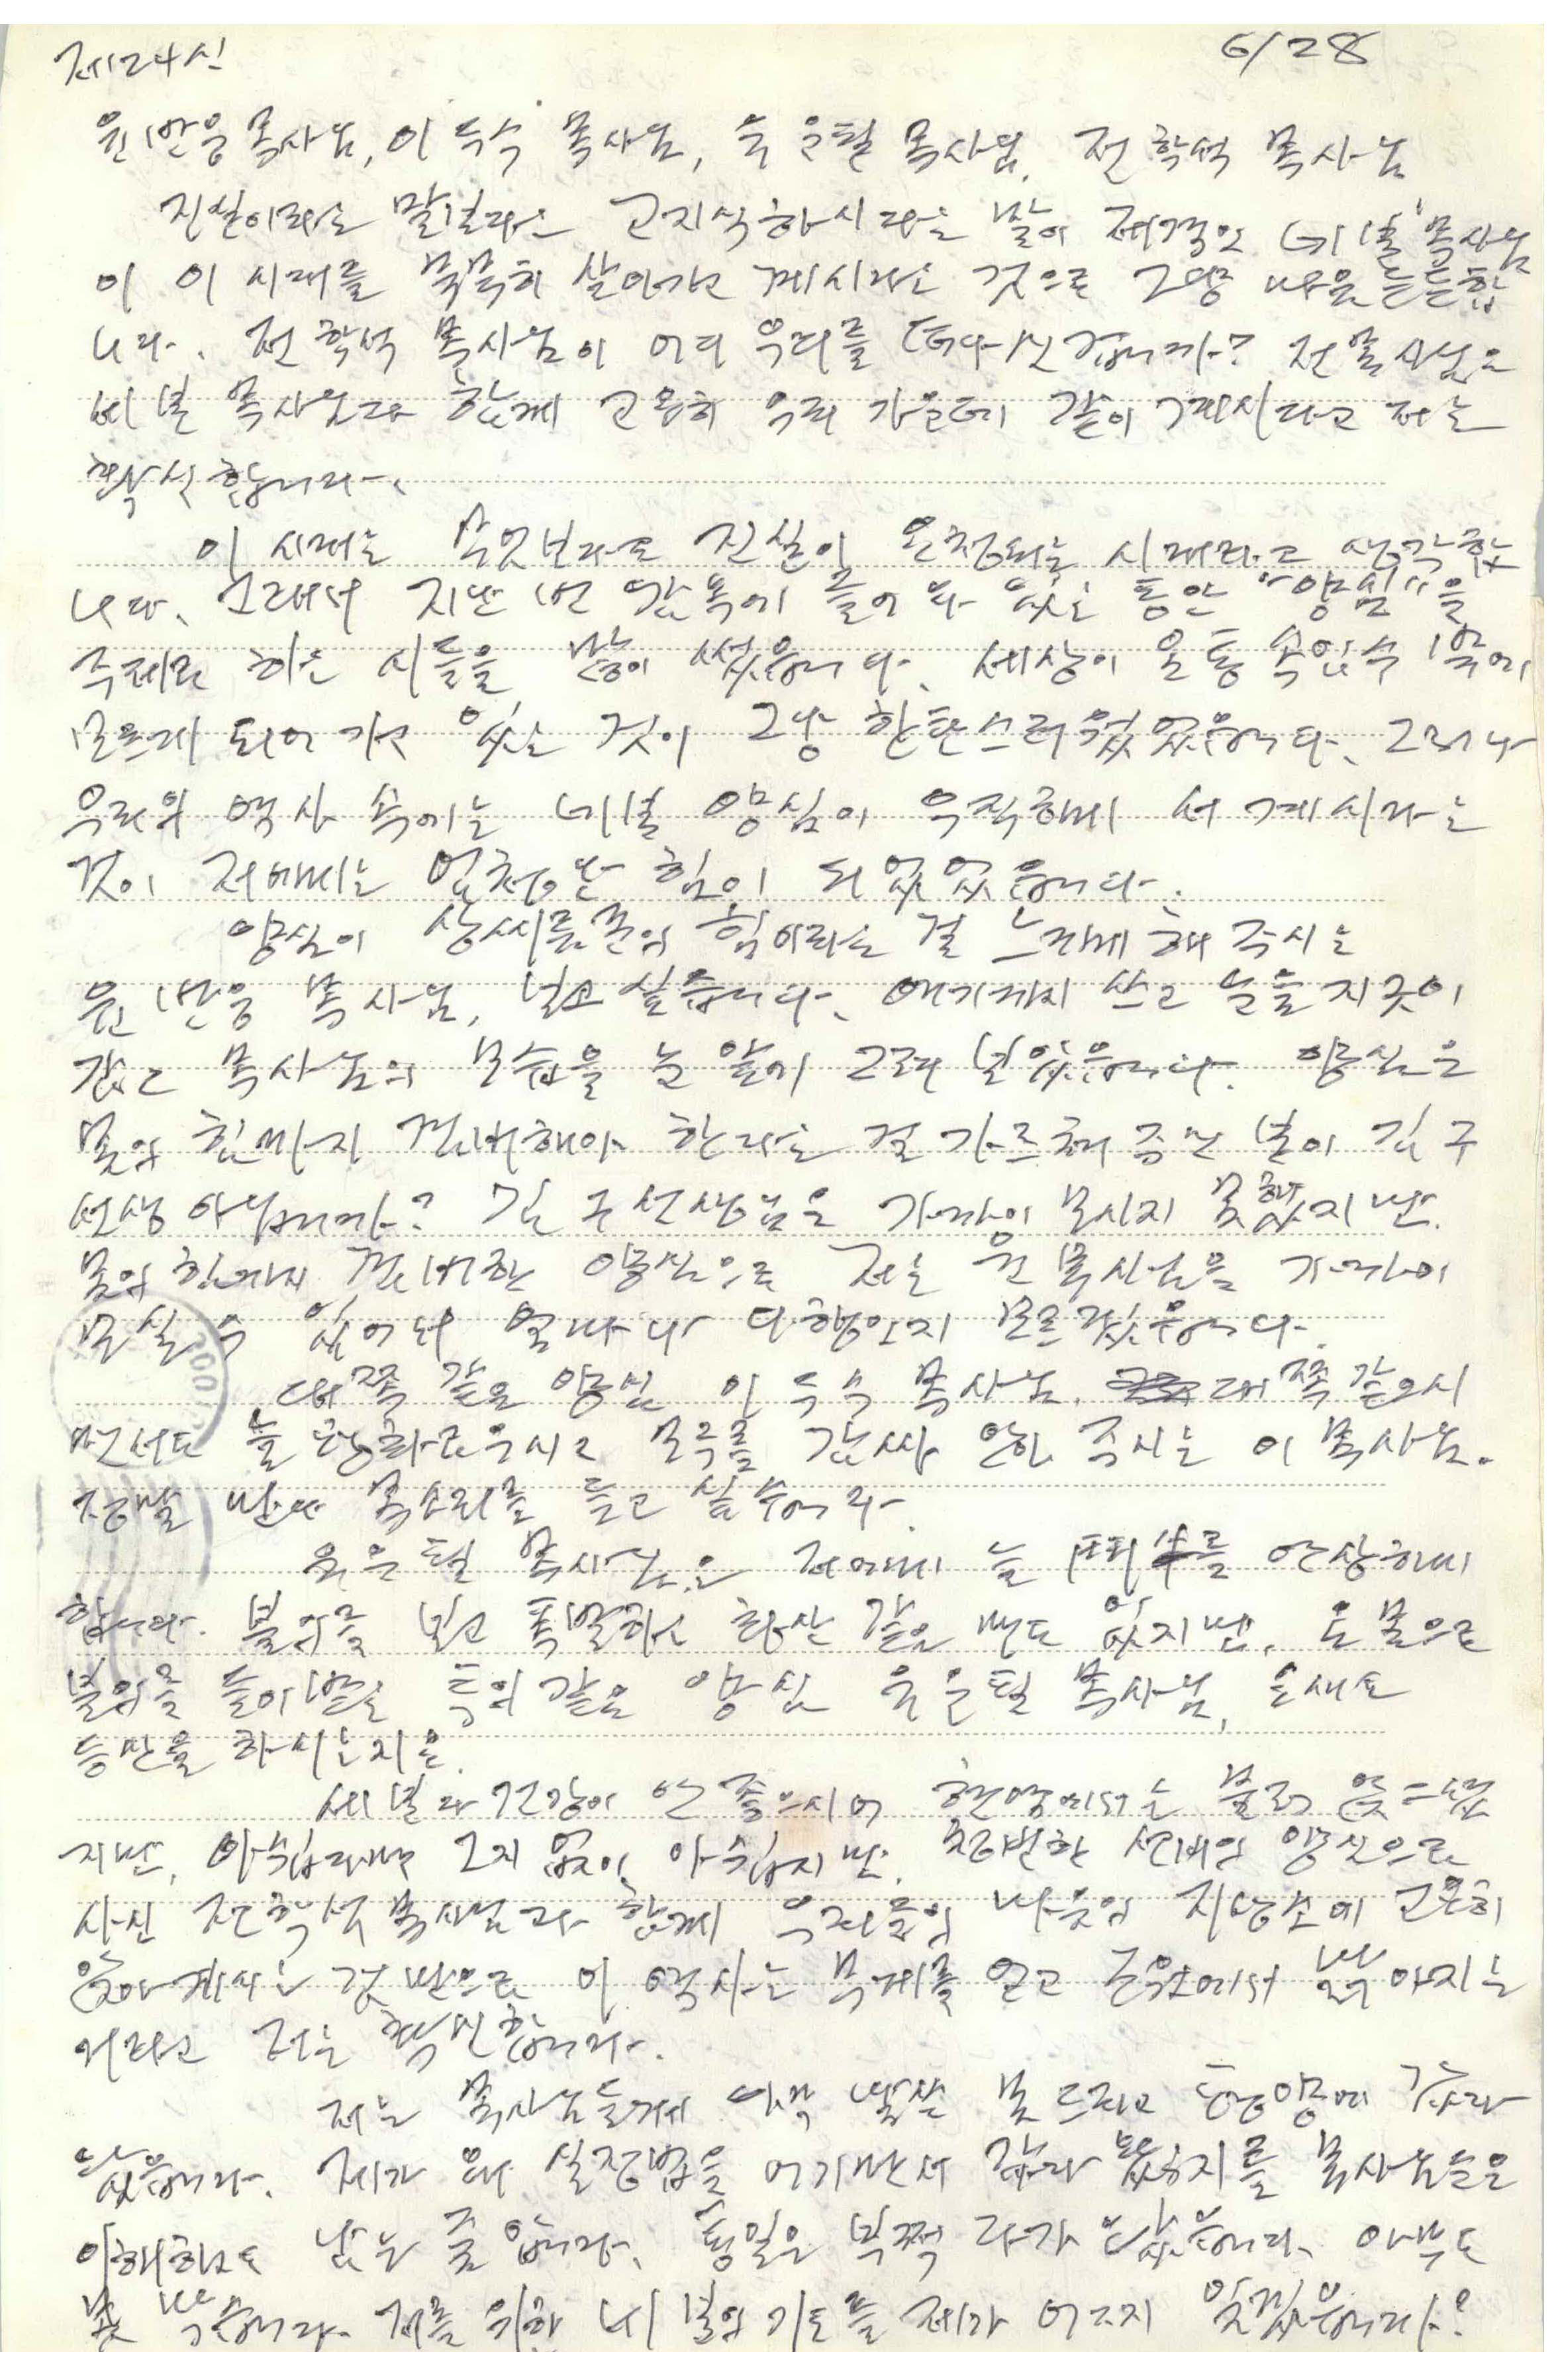 제24신 6/28
윤반웅 목사님, 이두수 목사님, 유운필 목사님, 전학석 목사님
진실이라는 말보다는 고지식하시다는 말이 제격인 네 분 목사님
이 이 시대를 묵묵히 살아가고 계시다는 것으로 그냥 마음 든든합
니다. 전학석 목사님이 어디 우리를 떠나신 겁니까? 전 목사님은
세 분 목사님과 함께 고요히 우리 가운데 같이 계시다고 저는
확신합니다.
이 시대는 무엇보다도 진실이 요청되는 시대라고 생각합
니다. 그래서 지난 번 감옥에 들어와 있는 동안 "양심"을
주제로 하는 시들을 많이 썼습니다. 세상이 온통 속임수 밖에
모르게 되어 가고 있는 것이 그냥 한탄스러웠었습니다. 그러나
우리의 역사 속에는 네 분 양심이 우직하게 서 계시다는
것이 저에게는 엄청난 힘이 되었었습니다.
양심이 힘이라는 걸 느끼게 해 주시는
윤반웅 목사님, 보고 싶습니다. 여기까지 쓰고 눈을 지긋이
감고 목사님의 모습을 눈 앞에 그려 보았습니다. 양심은
몸의 힘까지 겸비해야 한다는 걸 가르쳐 주신 분이 김구
선생 아닙니까? 김구 선생님은 가까이 모시지 못했지만.
몸의 힘까지 겸비한 양심으로 저는 윤 목사님을 가까이
모실 수 있어서 얼마나 다행인지 모르겠습니다.
대쪽 같은 양심 이두수 목사님. 대쪽 같으시
면서도 늘 평화로우시고 모두를 감싸 안아 주시는 이 목사님.
정말 만나 목소리를 듣고 싶습니다.
유운필 목사님은 저에게 늘 를 연상하게
합니다. 불의를 보고 폭발하는 화산 같은 때도 있지만, 온 몸으로
불의를 들이받는 같은 양심 유운필 목사님, 요새도
등산을 하시는지요.
세 분 다 건강이 안 좋으시어 현장에서는 물러 앉으셨
지만, 아쉽다면 그지 없이 아쉽지만, 청빈한 선비의 양심으로
사신 전학석 목사님과 함께 우리들의 마음의 지성소에 고요히
앉아 계시는 것만으로 이 역사는 무게를 얻고 근원에서 맑아지는
거라고 저는 확신합니다.
저는 목사님들께 아무 말씀 못 드리고 평양에 갔다
왔습니다. 제가 왜 실정법을 어기면서 갔다 왔는지를 목사님들은
이해하고도 남는 줄 압니다. 통일은 부쩍 다가 왔습니다. 아무도
못 막습니다. 저를 위한 네 분의 기도를 제가 어찌 잊겠습니까?